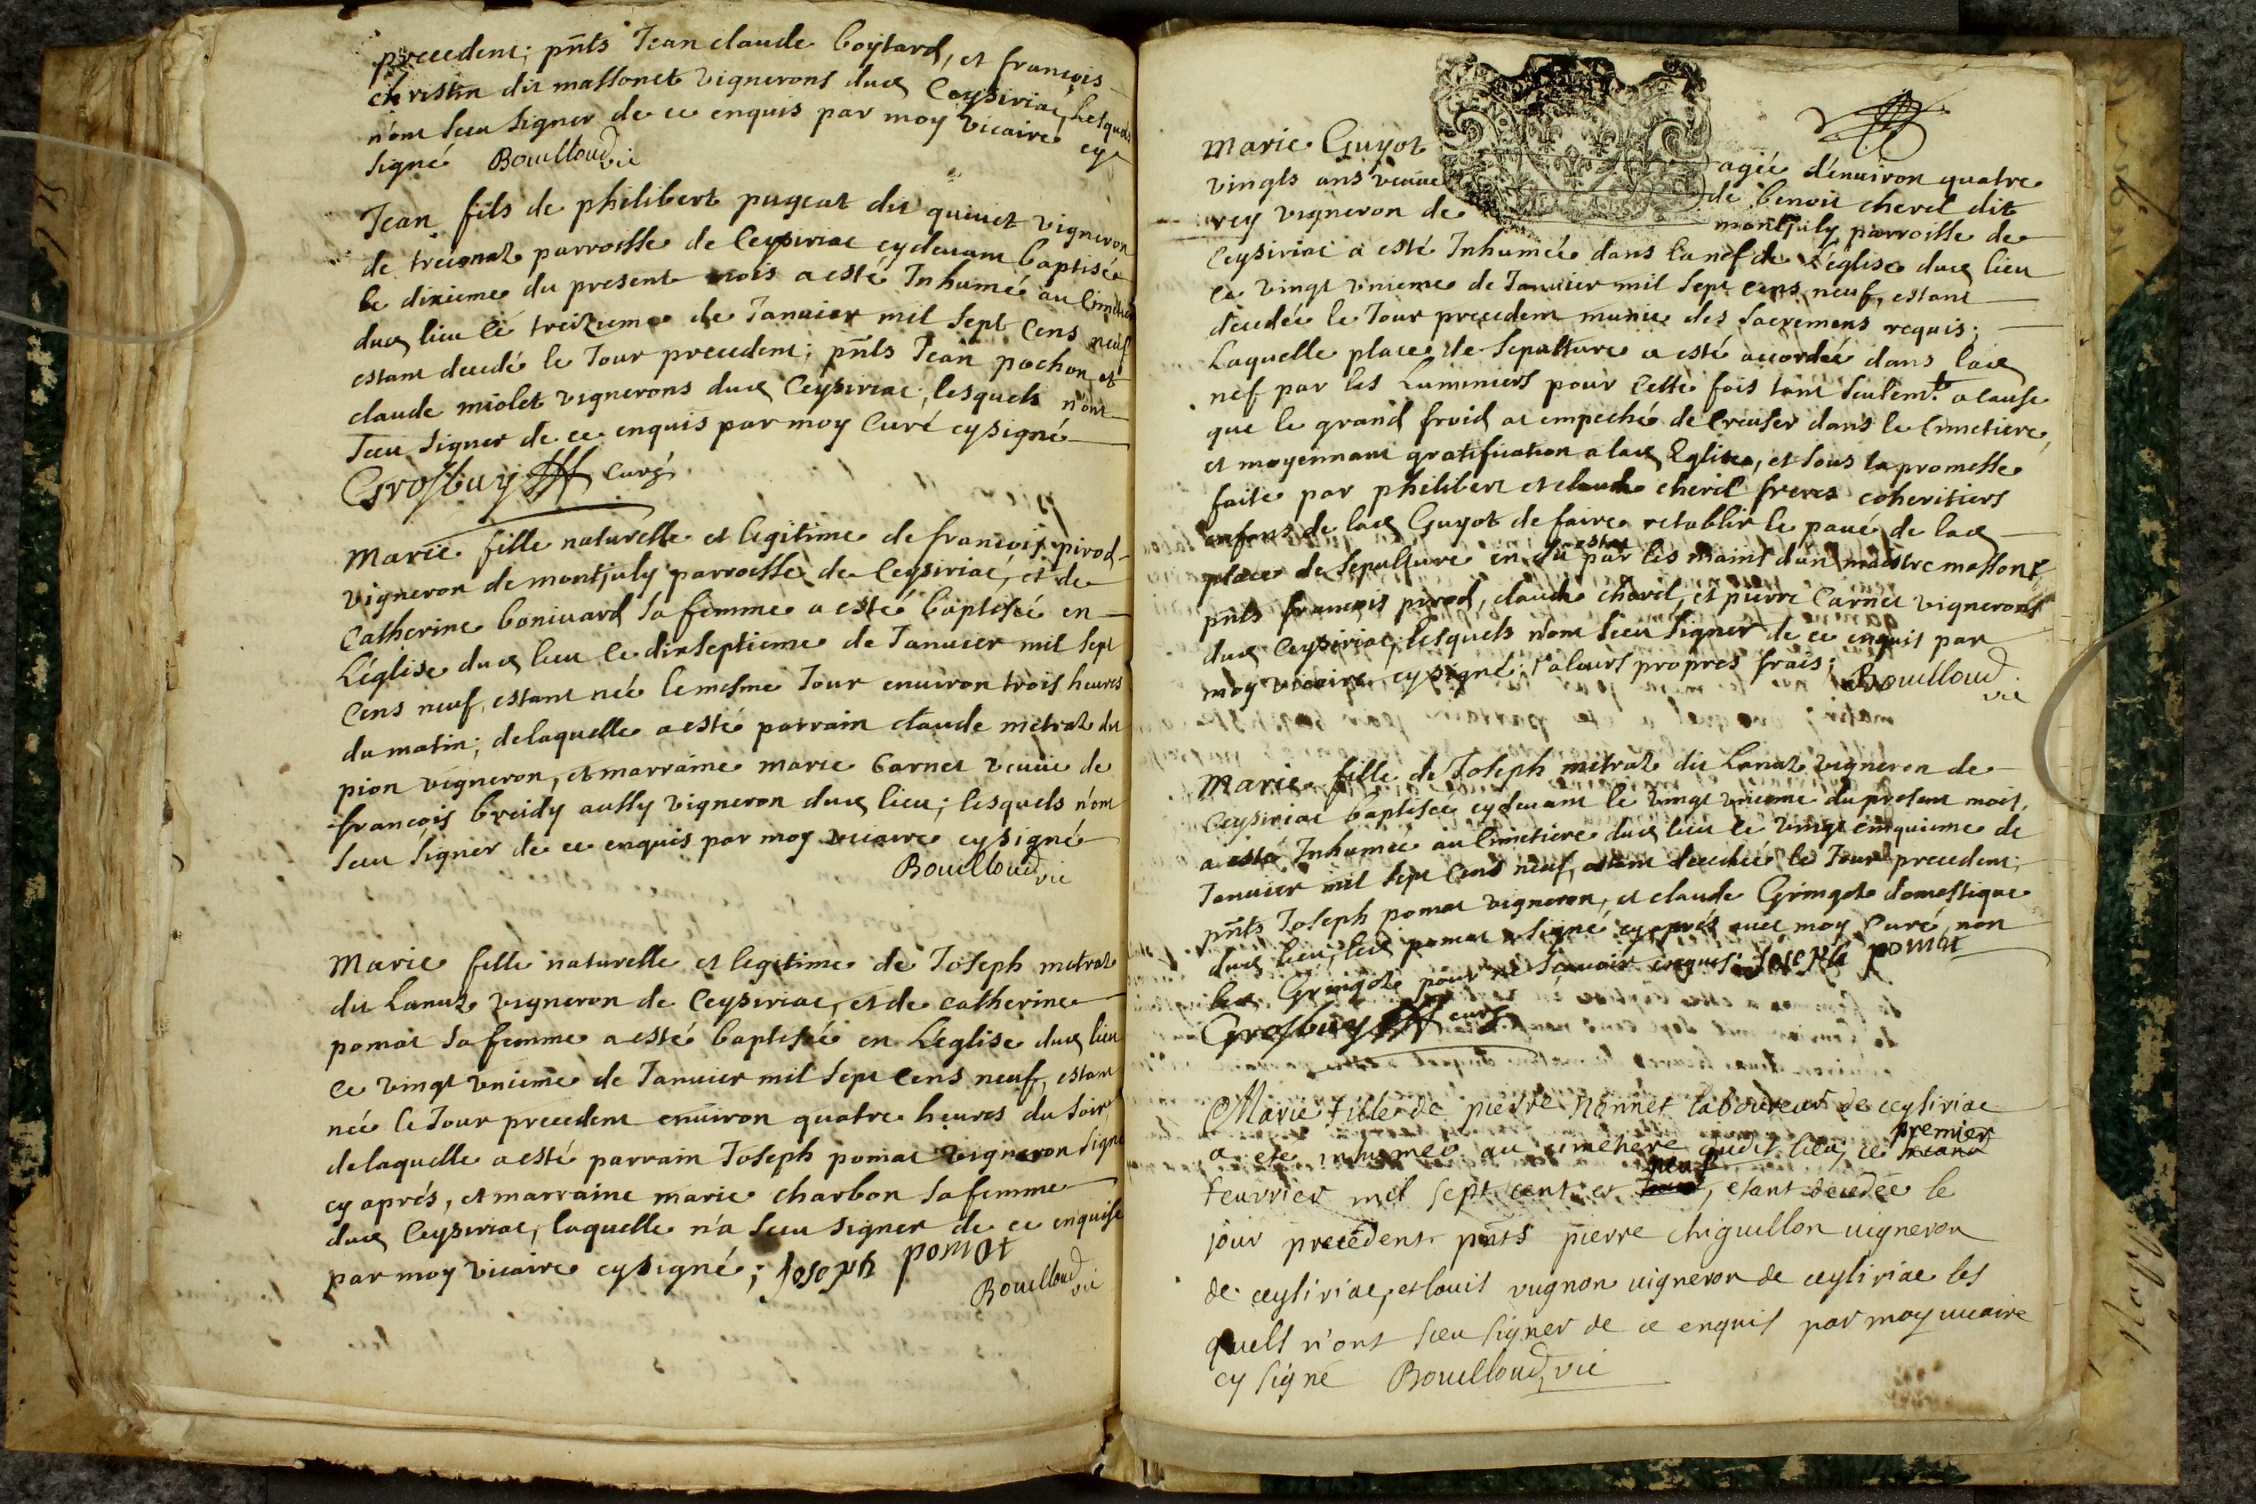 precedent; pñts Jean claude boytard, et francois
christin dit massonet vignerons dud Ceysiriac, Lesquels
n'ont sceu signer de ce enquis par moy vicaire cy
signé Bouilloud vic
Jean fils de philibert pugeat dit quinet vigneron
de treconaz parroisse de Ceysiriac cydevant baptisé
le dixieme du present mois a esté Inhumé au Cimetiere
dud lieu le treizieme de Janvier mil sept Cens neuf
estant decedé le Jour precedent; pñts Jean pochon et
claude miolet vignerons dud Ceysiriac, lesquels n'ont
sceu signer de ce enquis par moy Curé cysigné
Grosbuy curé
Marie fille naturelle et legitime de francois pirod
vigneron de montjuly parroisse de Ceysiriac, et de
Catherine bonivard sa femme a esté baptisée en
L'église dud lieu le dixseptieme de Janvier mil sept
Cens neuf, estant née le mesme Jour environ trois heures
du matin; delaquelle a esté parrain claude metraz dit
pion vigneron, et marraine marie Carnet veuve de
francois breidy aussy vigneron dud lieu; lesquels n'ont
sceu signer de ce enquis par moy vicaire cysigné
Bouilloud vic
Marie fille naturelle et legitime de Joseph metraz
dit Lanaz vigneron de Ceysiriac, et de catherine
pomat sa femme a esté baptisée en L'église dud lieu
le vingt vnieme de Janvier mil sept Cens neuf, estant
née le Jour precedent environ quatre heures du soir
delaquelle a esté parrain Joseph pomat vigneron signé
cy aprés, et marraine marie charbon sa femme
dud Ceysiriac, laquelle n'a sceu signer de ce enquise
par moy vicaire cysigné; Joseph pomat
Bouilloud vic
Marie Guyot agée d'environ quatre
vingts ans veuve de benoit cheril dit
rey vigneron de montjuly parroisse de
Ceysiriac a esté Inhumée dans la nef de L'église dud lieu
le vingt vnieme de Janvier mil sept Cens neuf, estant
decedée le Jour precedent munie des sacremens requis;
Laquelle place de sepulture a esté accordée dans lad
nef par les Luminiers pour Cette fois tant seulemt. a cause
que le grand froid at empeché de Creuser dans le Cimetiere,
et moyennant gratification a lad Eglise, et sous la promesse
faite par philibert et claude cheril freres coheritiers
enfans de lad Guyot de faire retablir le pavé de lad
place de sepulture en son estat par les mains d'un maistre masson
pñts francois pirod, claude cheril, et pierre Carnet vignerons
dud Ceysiriac, lesquels n'ont sceu signer de ce enquis par
moy vicaire cysigné; & a leurs propres frais; Bouilloud
vic
Marie fille de Joseph metraz dit Lanaz vigneron de
Ceysiriac baptisée cydevant le vingt vnieme du present mois,
a esté Inhumée au Cimetiere dud lieu le vingt cinquieme de
Janvier mil sept Cens neuf, estant decedée le Jour precedent;
pñts Joseph pomat vigneron, et claude Gringoz domestique
dud lieu, led pomat a signé cy aprés avec moy Curé, non
led Gringoz pour ne scavoir enquis. Joseph pomat
Grosbuy curé
Marie fille de pierre Nonnet laboureur de ceysiriac
a ete inhumée au cimetiere dudit lieu, le premier
fevrier mil sept cent et neuf, etant decedée le
jour precedent. pñts pierre chiguillon vigneron
de ceysiriac, et louis vugnon vigneron de ceysiriac les
quels n'ont sceu signer de ce enquis par moy vicaire
cy signé Bouilloud, vic